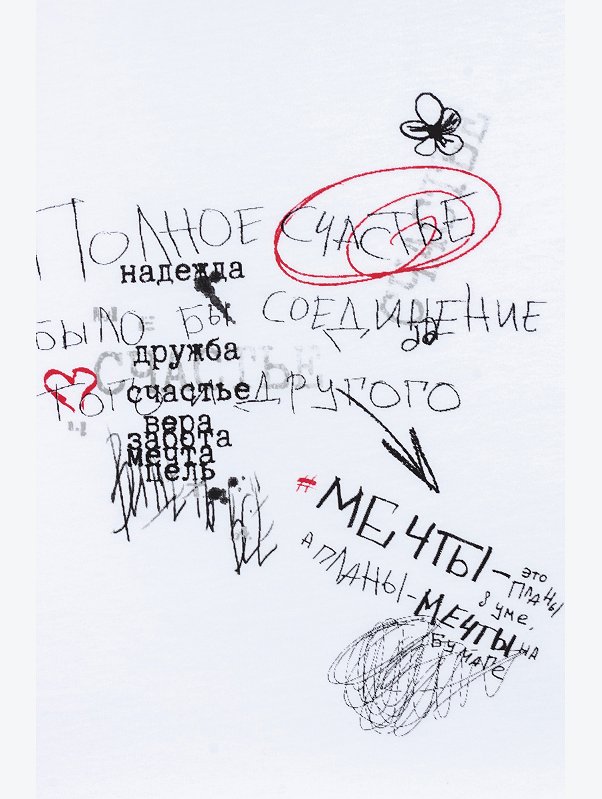 ПОЛНОЕ СЧАСТЬЕ
надежда
БЫЛО БЫ СОЕДИНЕНИЕ
дружба
СЧАСТЬЕ
счастье
ТОГО И ДРУГОГО
вера
забота
мечта
цель
#МЕЧТЫ – ЭТО
ПЛАНЫ
В УМЕ,
А ПЛАНЫ – МЕЧТЫ НА
БУМАГЕ